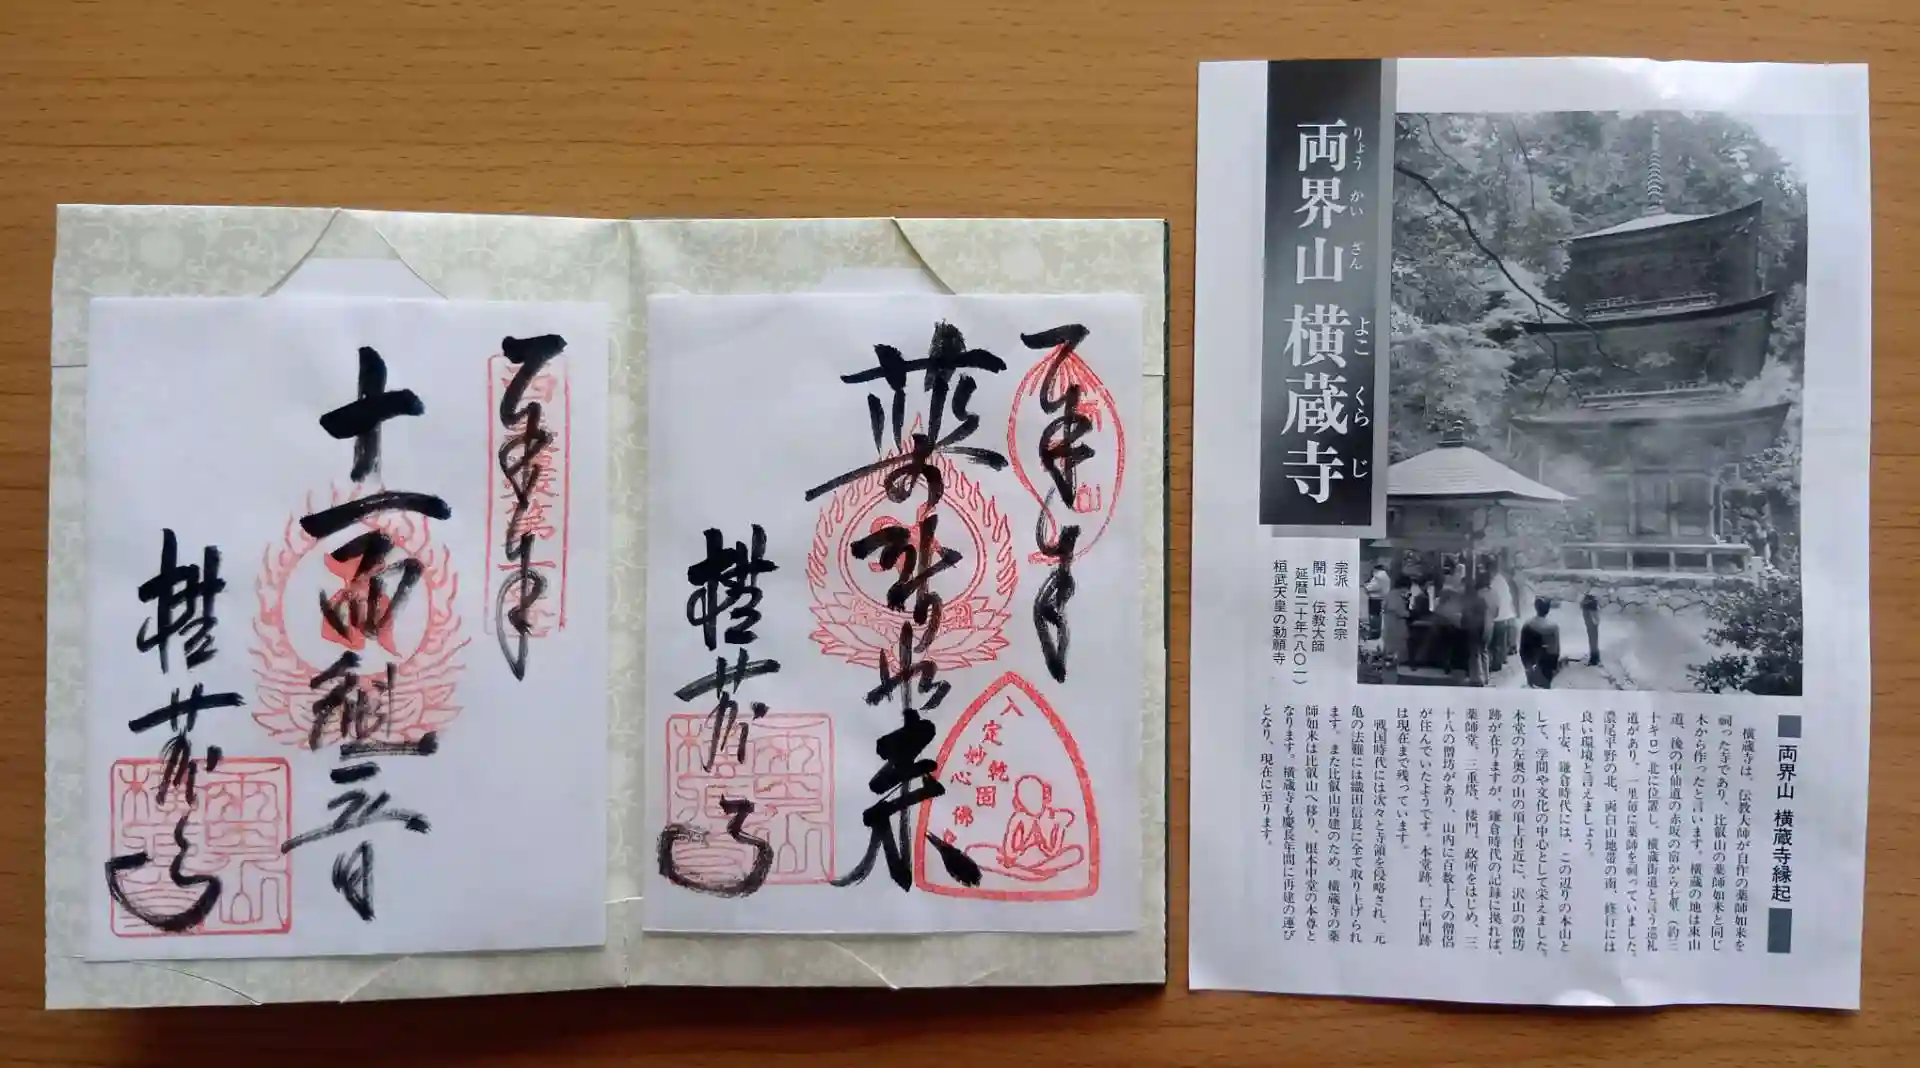 奉拝
薬師如来
横蔵寺
入定
妙心
乾固
佛
奉拝
西美濃第一番
十一面観世音
横蔵寺
両界山 横蔵寺
りょう かい ざん よこ くら じ
宗派 天台宗
開山 伝教大師
延暦二十年(八〇一)
桓武天皇の勅願寺
両界山 横蔵寺縁起
横蔵寺は、伝教大師が自作の薬師如来を
祠った寺であり、比叡山の薬師如来と同じ
木から作ったと言います。横蔵の地は東山
道、後の中仙道の赤坂の宿から七里(約三
十キロ)北に位置し、横蔵街道と言う巡礼
道があり、一里毎に薬師を祠っていました。
濃尾平野の北、両白山地帯の南、修行には
良い環境と言えましょう。
平安、鎌倉時代には、この辺りの本山と
して、学問や文化の中心として栄えました。
本堂の左奥の山の頂上付近に、沢山の僧坊
跡が在りますが、鎌倉時代の記録に拠れば、
薬師堂、三重塔、楼門、政所をはじめ、三
十八の僧坊があり、山内に百数十人の僧侶
が住んでいたようです。本堂跡、仁王門跡
は現在まで残っています。
戦国時代には次々と寺領を侵略され、元
亀の法難には織田信長に全て取り上げられ
ます。また比叡山再建のため、横蔵寺の薬
師如来は比叡山へ移り、根本中堂の本尊と
なります。横蔵寺も慶長年間に再建の運び
となり、現在に至ります。